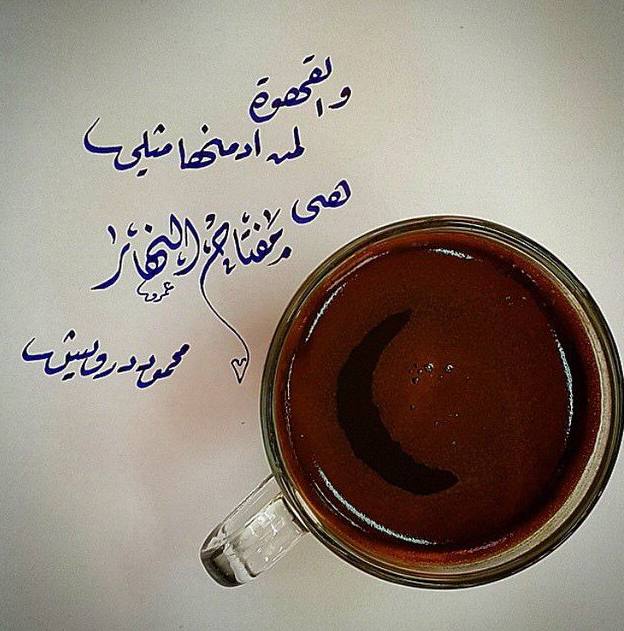 والقهوة
لمن ادمنها مثلي
هي
مفتاح النهار
عمرو
محمود درويش